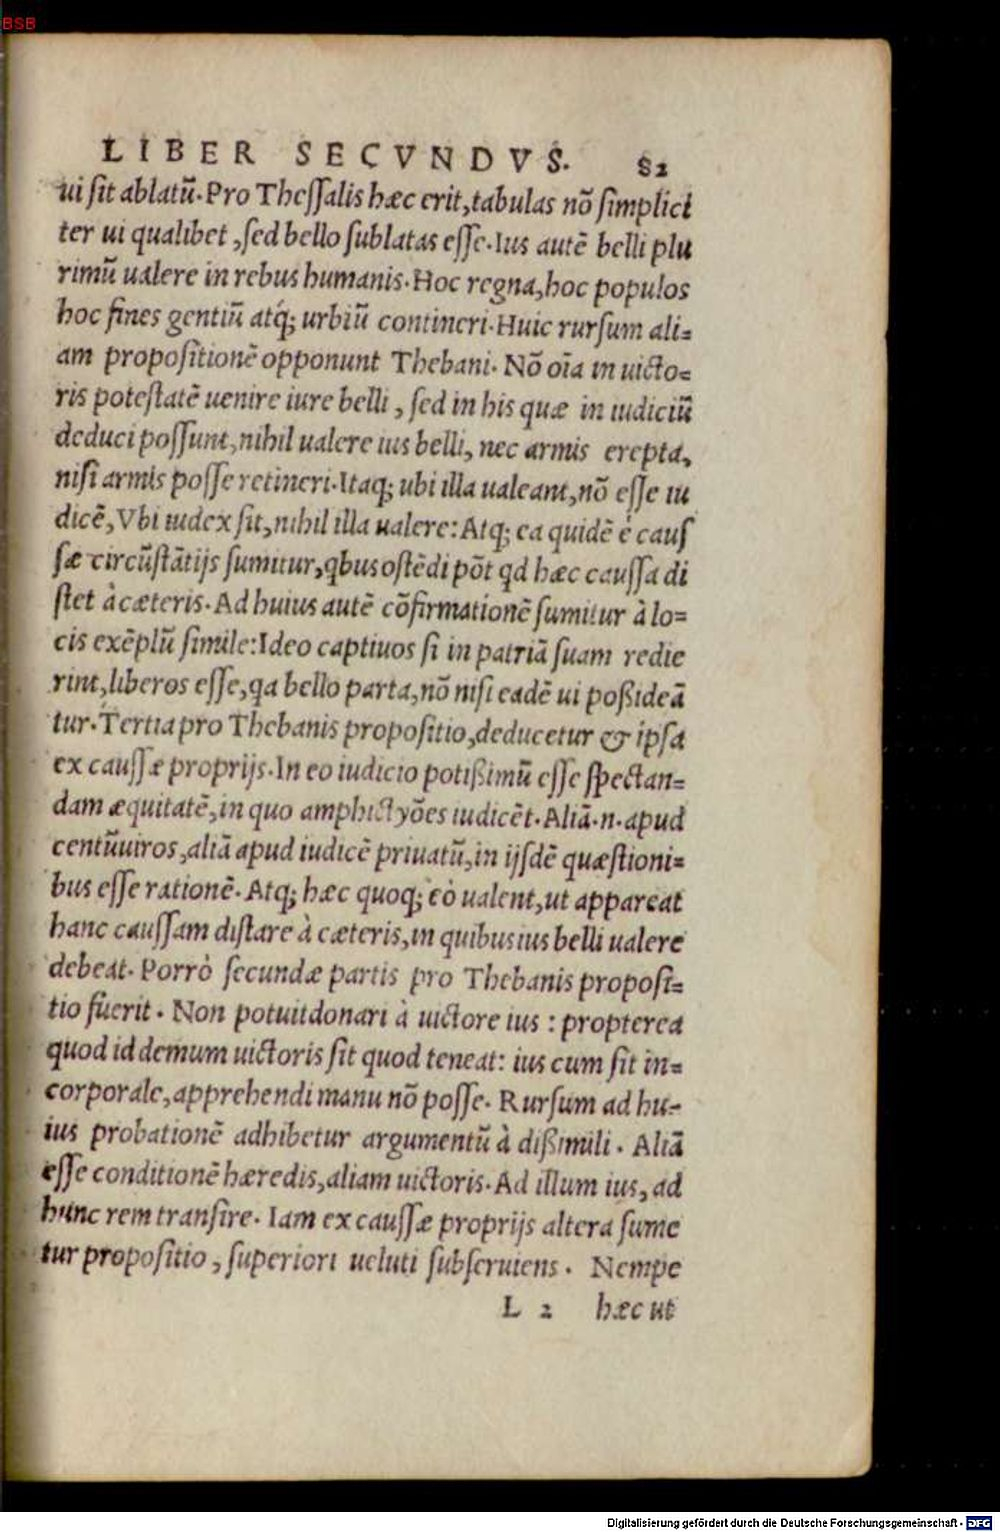 BSB
LIBER SECVNDVS. 82
ui ſit ablatū. Pro Theſſalis hæc erit, tabulas nō ſimplici
ter ui qualibet, ſed bello ſublatas eſſe. Ius autē belli plu
rimū ualere in rebus humanis. Hoc regna, hoc populos
hoc fines gentiū atq́; urbiū contineri. Huic rurſum ali=
am propoſitionē opponunt Thebani. Nō oīa in uicto=
ris poteſtatē uenire iure belli, ſed in his quæ in iudiciū
deduci poſſunt, nihil ualere ius belli, nec armis erepta,
niſi armis poſſe retineri. Itaq; ubi illa ualeant, nō eſſe iu
dicē, Vbi iudex ſit, nihil illa ualere: Atq; ea quidē è cauſ
ſæ circūſtātijs ſumitur, qbus oſtēdi pōt qd hæc cauſſa di
ſtet à cæteris. Ad huius autē cōfirmationē ſumitur à lo=
cis exēplū ſimile: Ideo captiuos ſi in patriā ſuam redie
rint, liberos eſſe, qa bello parta, nō niſi eadē ui poßideā
tur. Tertia pro Thebanis propoſitio, deducetur & ipſa
ex cauſſæ proprijs. In eo iudicio potißimū eſſe ſpectan=
dam æquitatē, in quo amphictyōes iudicēt. Aliā .n. apud
centūuiros, aliā apud iudicē priuatū, in ijſdē quæſtioni=
bus eſſe rationē. Atq; hæc quoq; eò ualent, ut appareat
hanc cauſſam diſtare à cæteris, in quibus ius belli ualere
debeat. Porrò ſecundæ partis pro Thebanis propoſi=
tio fuerit. Non potuit donari à uictore ius: propterea
quod id demum uictoris ſit quod teneat: ius cum ſit in=
corporale, apprehendi manu nō poſſe. Rurſum ad hu=
ius probationē adhibetur argumentū à dißimili. Aliā
eſſe conditionē hæredis, aliam uictoris. Ad illum ius, ad
hunc rem tranſire. Iam ex cauſſæ proprijs altera ſume
tur propoſitio, ſuperiori ueluti ſubſeruiens. Nempe
L 2 hæc ut
Digitalisierung gefördert durch die Deutsche Forschungsgemeinschaft - DFG